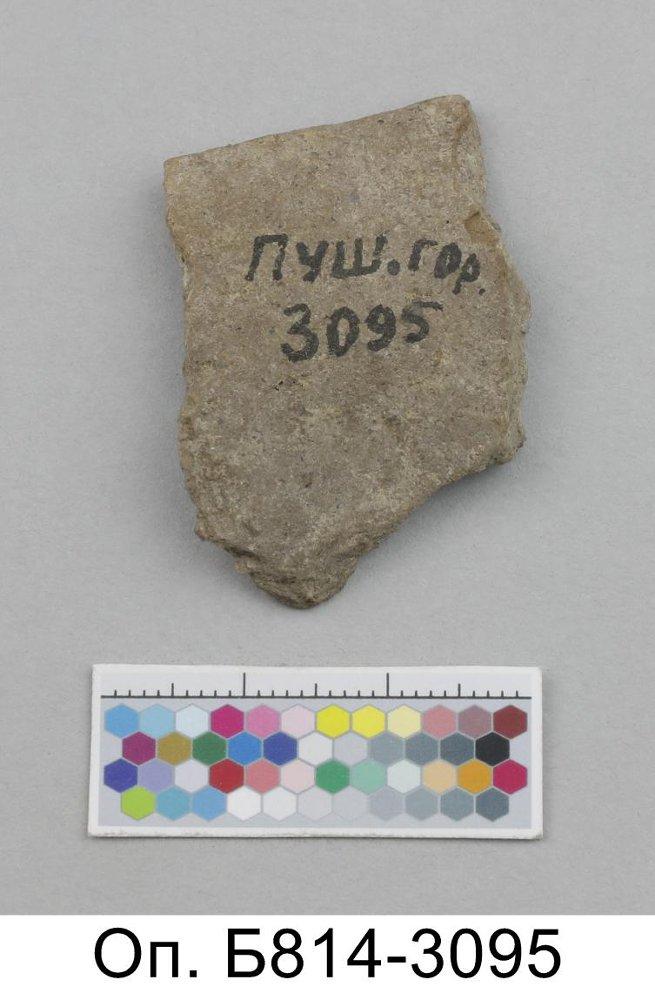 Пуш.гор.
3095
Оп. Б814-3095